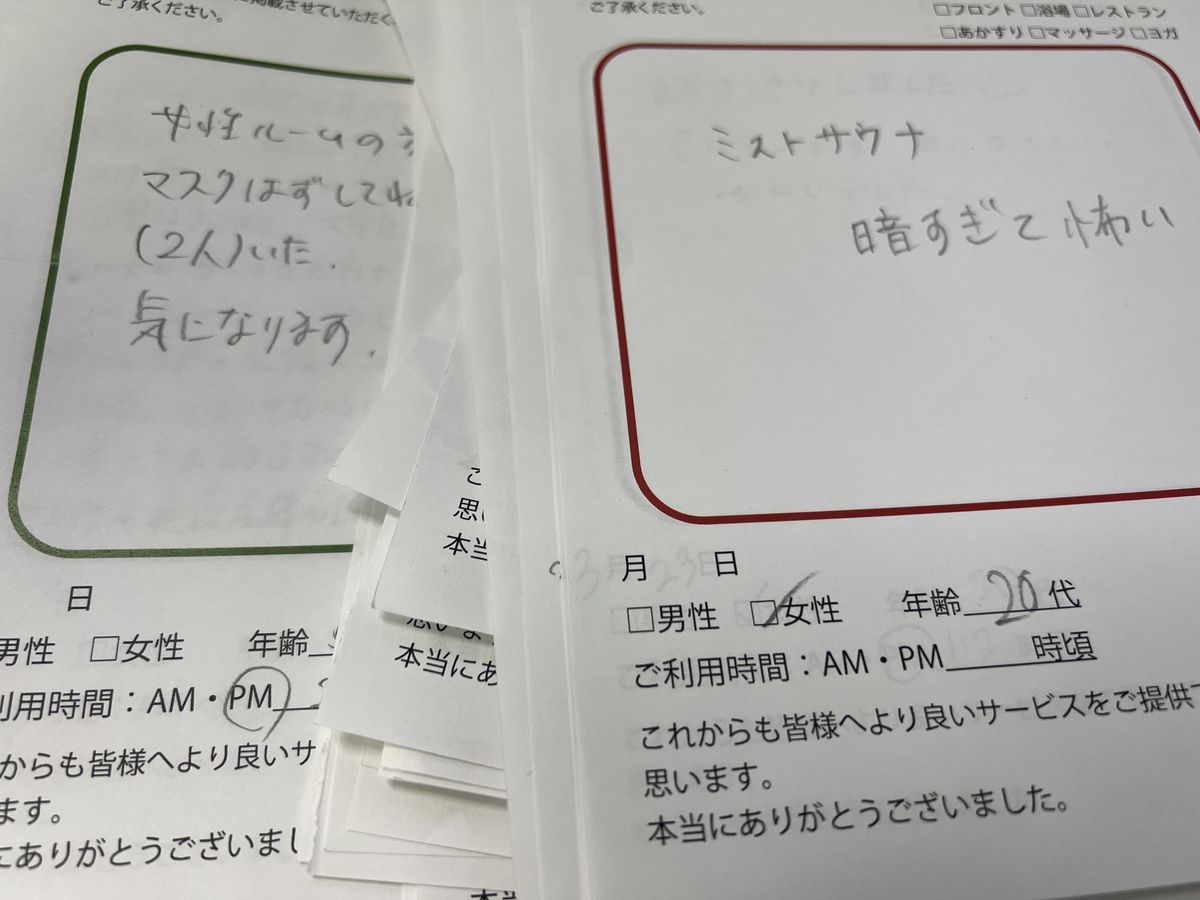 に掲載させていただく
ご了承ください。
女性ルームの
マスクはずしてね
(2人)いた.
気になります.
日
男性 □女性 年齢
利用時間：AM・PM
からも皆様へより良いサ
ます。
にありがとうございまし
こ
思い
本当
思いま
本当にあ
ご了承ください。
□フロント □浴場 □レストラン
□あかすり □マッサージ □ヨガ
ミストサウナ
暗すぎて怖い
3月23日
月 日
□男性 □女性 年齢 20代
ご利用時間：AM・PM 時頃
これからも皆様へより良いサービスをご提供
思います。
本当にありがとうございました。